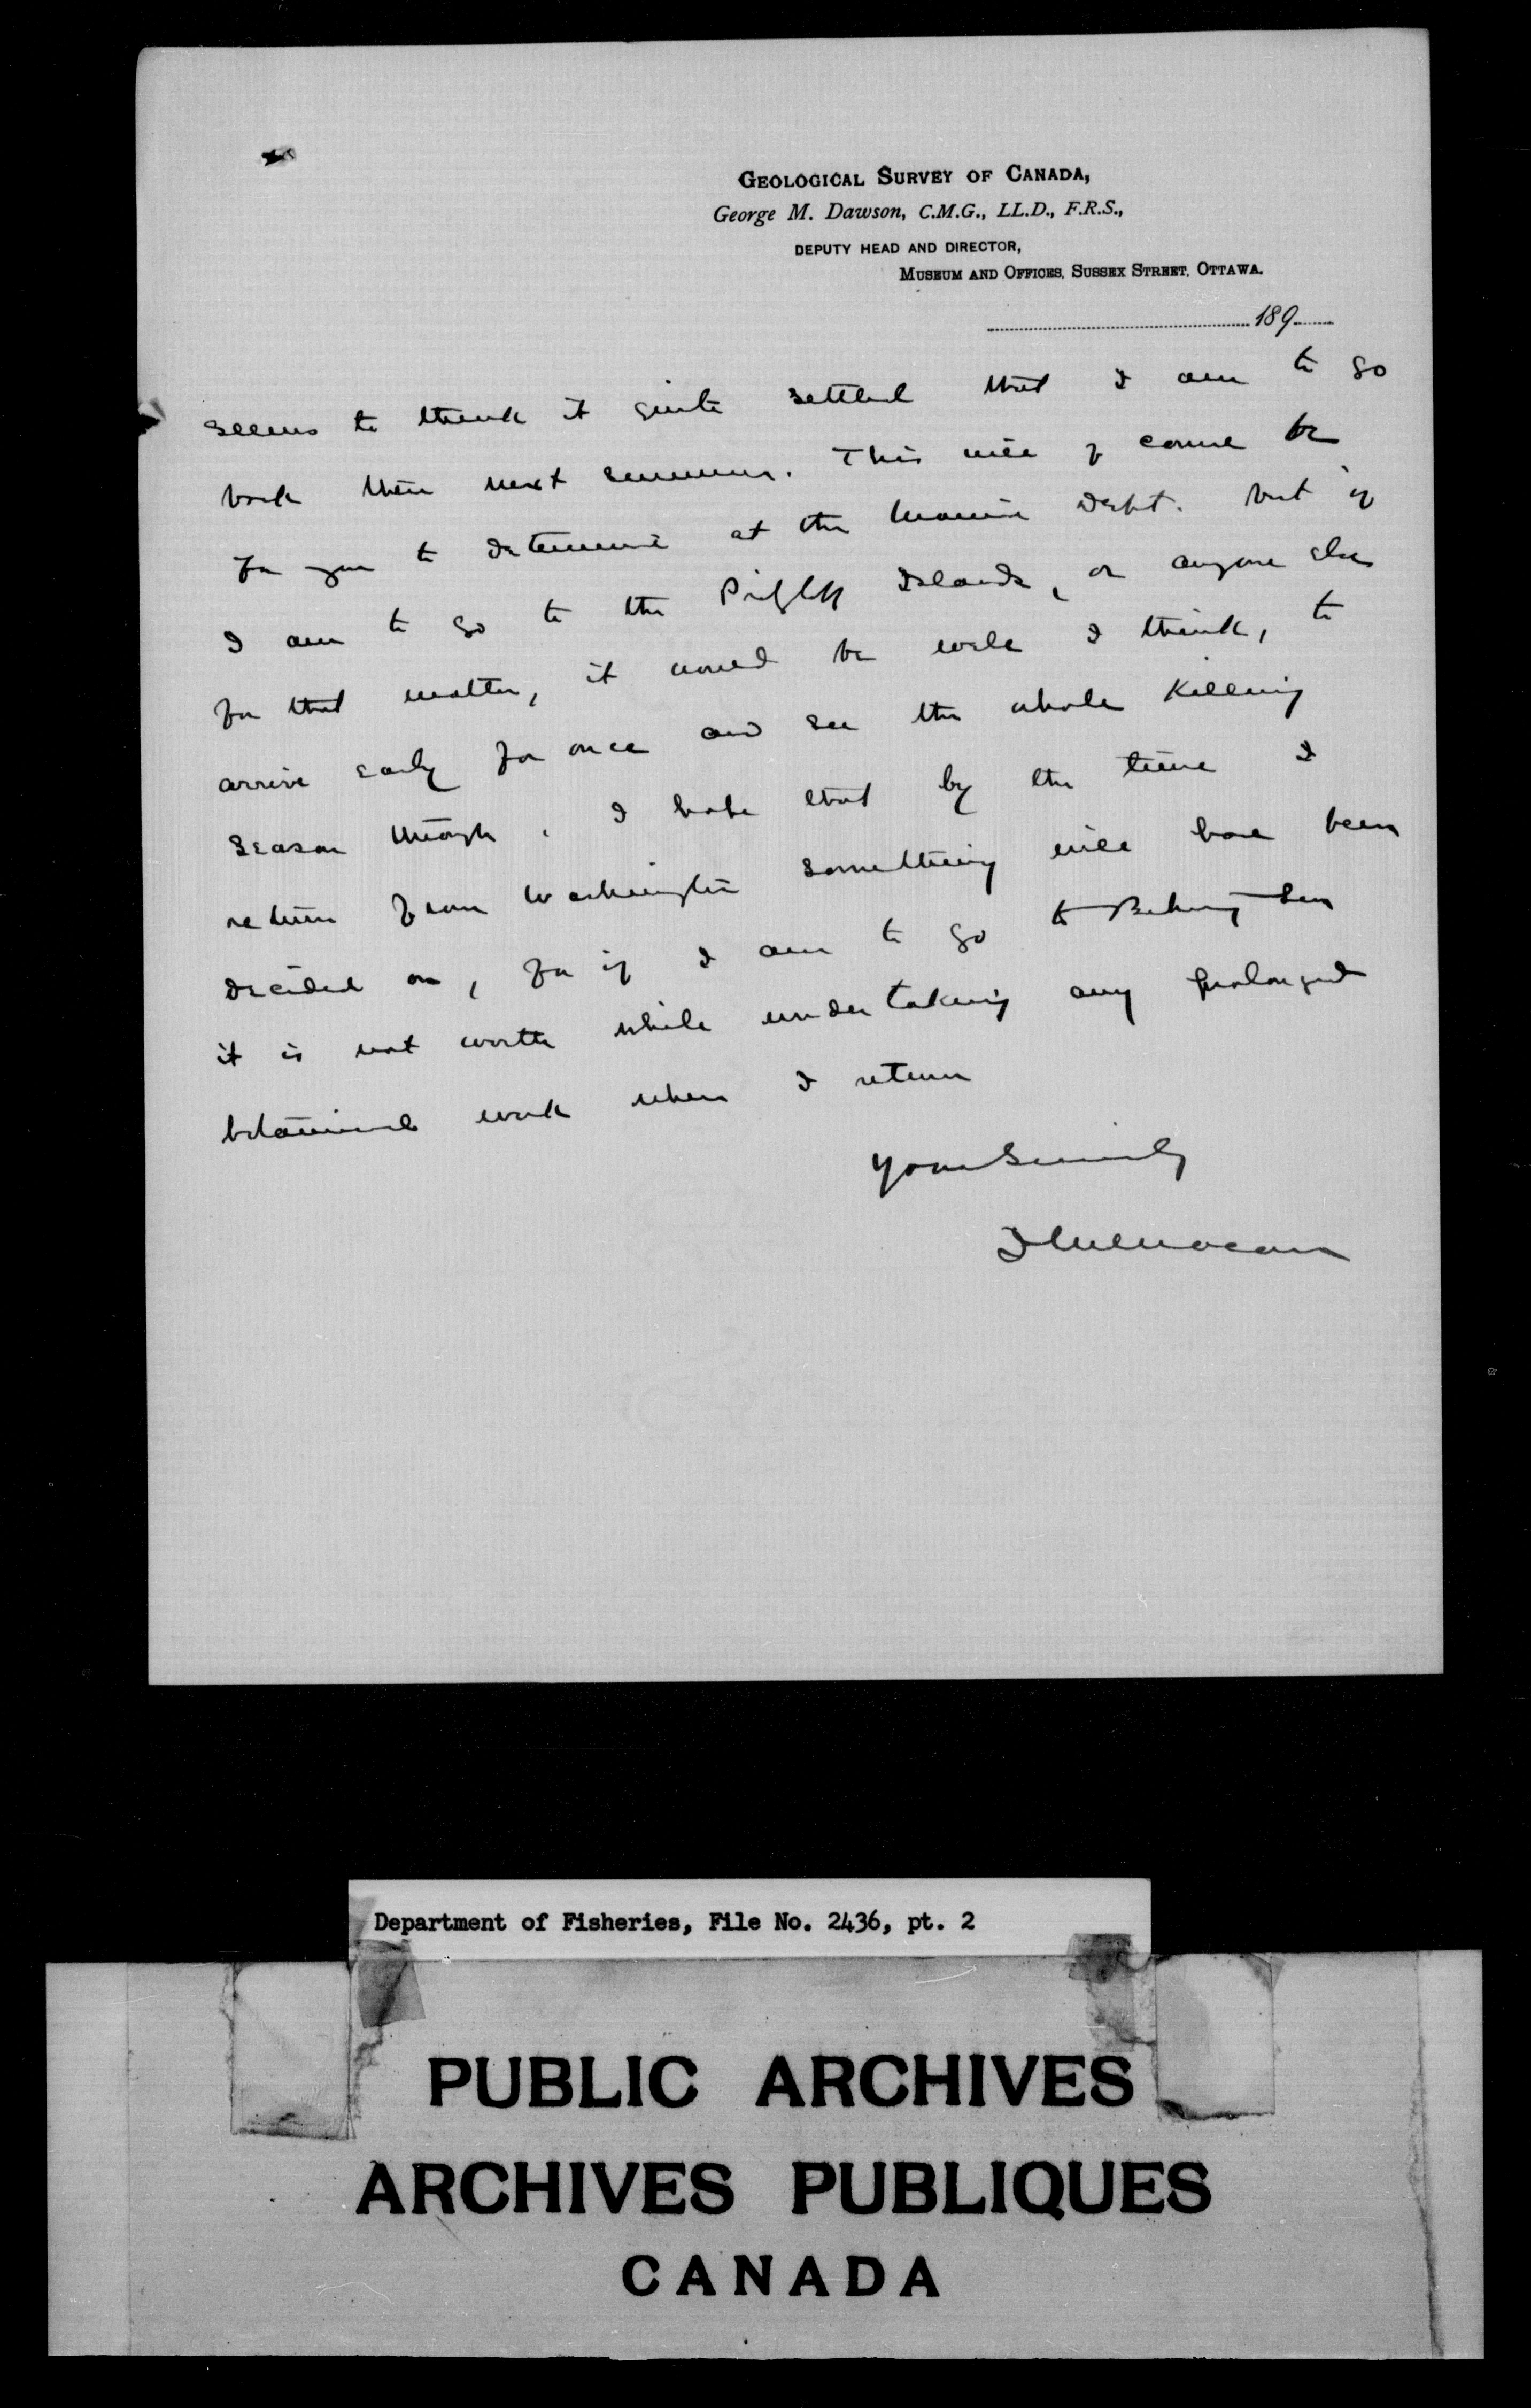 GEOLOGICAL SURVEY OF CANADA,
George M. Dawson, C.M.G., LL.D., F.R.S.,
DEPUTY HEAD AND DIRECTOR,
MUSEUM AND OFFICES, SUSSEX STREET, OTTAWA.
189
seems to think it quite settled that I am to go
back there next summer. This will of course be
for you to determine at the Marine Dept. but if
I am to go to the Pribyloff Islands, or anyone else
for that matter, it would be well I think, to
arrive early for once and see the whole killing
season through. I hope that by the time I
return from Washington something will have been
decided on, for if I am to go to Behring Sea
it is not worth while undertaking any prolonged
botanical work when I return
Yours Sincerely
Department of Fisheries, File No. 2436, pt. 2
PUBLIC ARCHIVES
ARCHIVES PUBLIQUES
CANADA